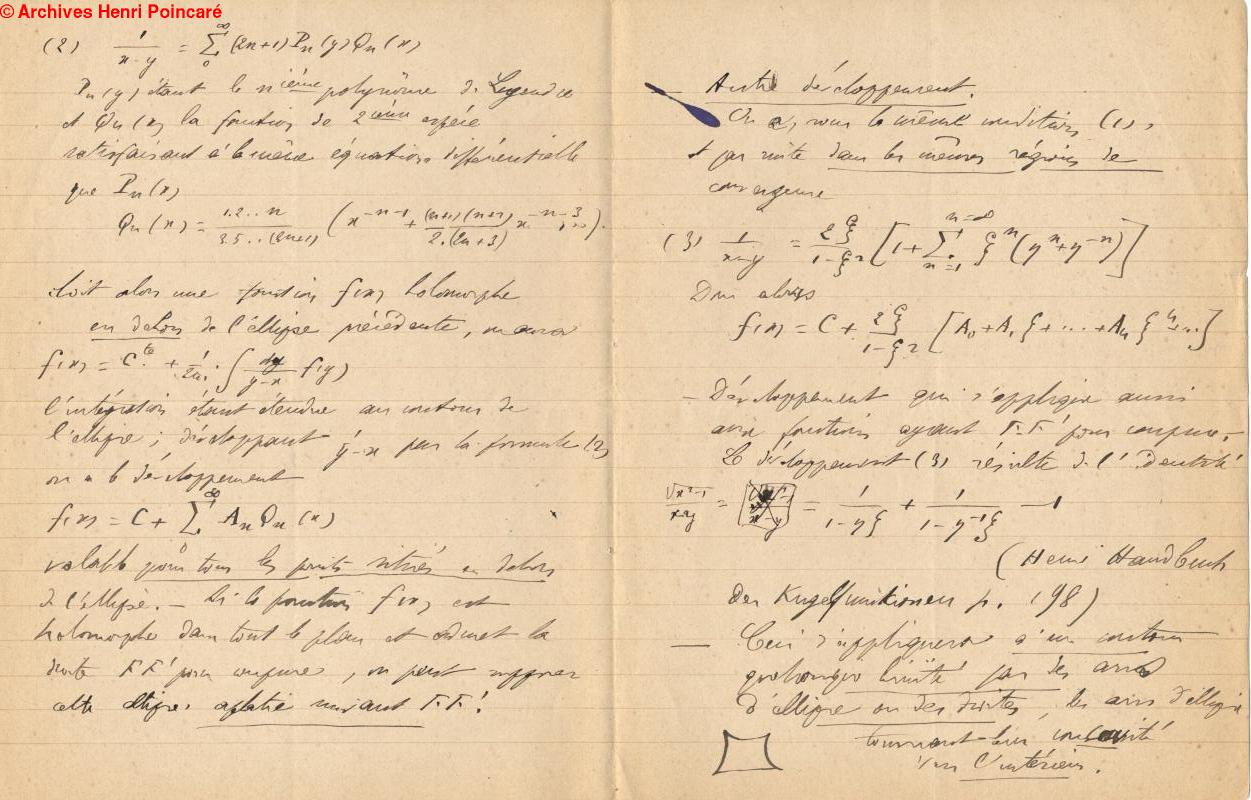 © Archives Henri Poincaré
(2) 1/(x-y) = ∑_0^∞ (2n+1) P_n(y) Q_n(x)
P_n(y) étant le nième polynôme de Legendre
et Q_n(x) la fonction de 2ième espèce
satisfaisant à la même équation différentielle
que P_n(x)
Q_n(x) = 1.2...n / 3.5...(2n+1) (x^{-n-1} + (n+1)(n+2) / 2.(2n+3) x^{-n-3} ...).
Soit alors une fonction f(x) holomorphe
en dehors de l'ellipse précédente, on aura
f(x) = C^te + 1/2iπ ∫ dy/(y-x) f(y)
l'intégration étant étendue au contour de
l'ellipse ; développant 1/(y-x) par la formule (2)
on a le développement
f(x) = C + ∑_0^∞ A_n Q_n(x)
valable pour tous les points situés en dehors
de l'ellipse. — Si la fonction f(x) est
holomorphe dans tout le plan et admet la
droite FF' pour coupure, on peut supposer
cette ellipse aplatie suivant FF'.
— Autre développement.
On a, sous les mêmes conditions (1),
et par suite dans les mêmes régions de
convergence
(3) 1/(x-y) = 2ξ/(1-ξ²) [1 + ∑_{n=1}^{n=∞} ξ^n (η^n + η^{-n})]
Donc alors
f(x) = C + 2ξ/(1-ξ²) [A_0 + A_1 ξ + ... + A_n ξ^n + ...]
— Développement qui s'applique aussi
aux fonctions ayant FF' pour coupure. —
Le développement (3) résulte de l'identité
√(x²-1)/(x-y) = 1/(1-ηξ) + 1/(1-η^{-1}ξ) - 1
(Heine Handbuch
der Kugelfunktionen p. 198)
— Ceci s'appliquera à un contour
quelconque limité par des arcs
d'ellipse ou des droites, les arcs d'ellipse
tournant leur convexité
vers l'intérieur.